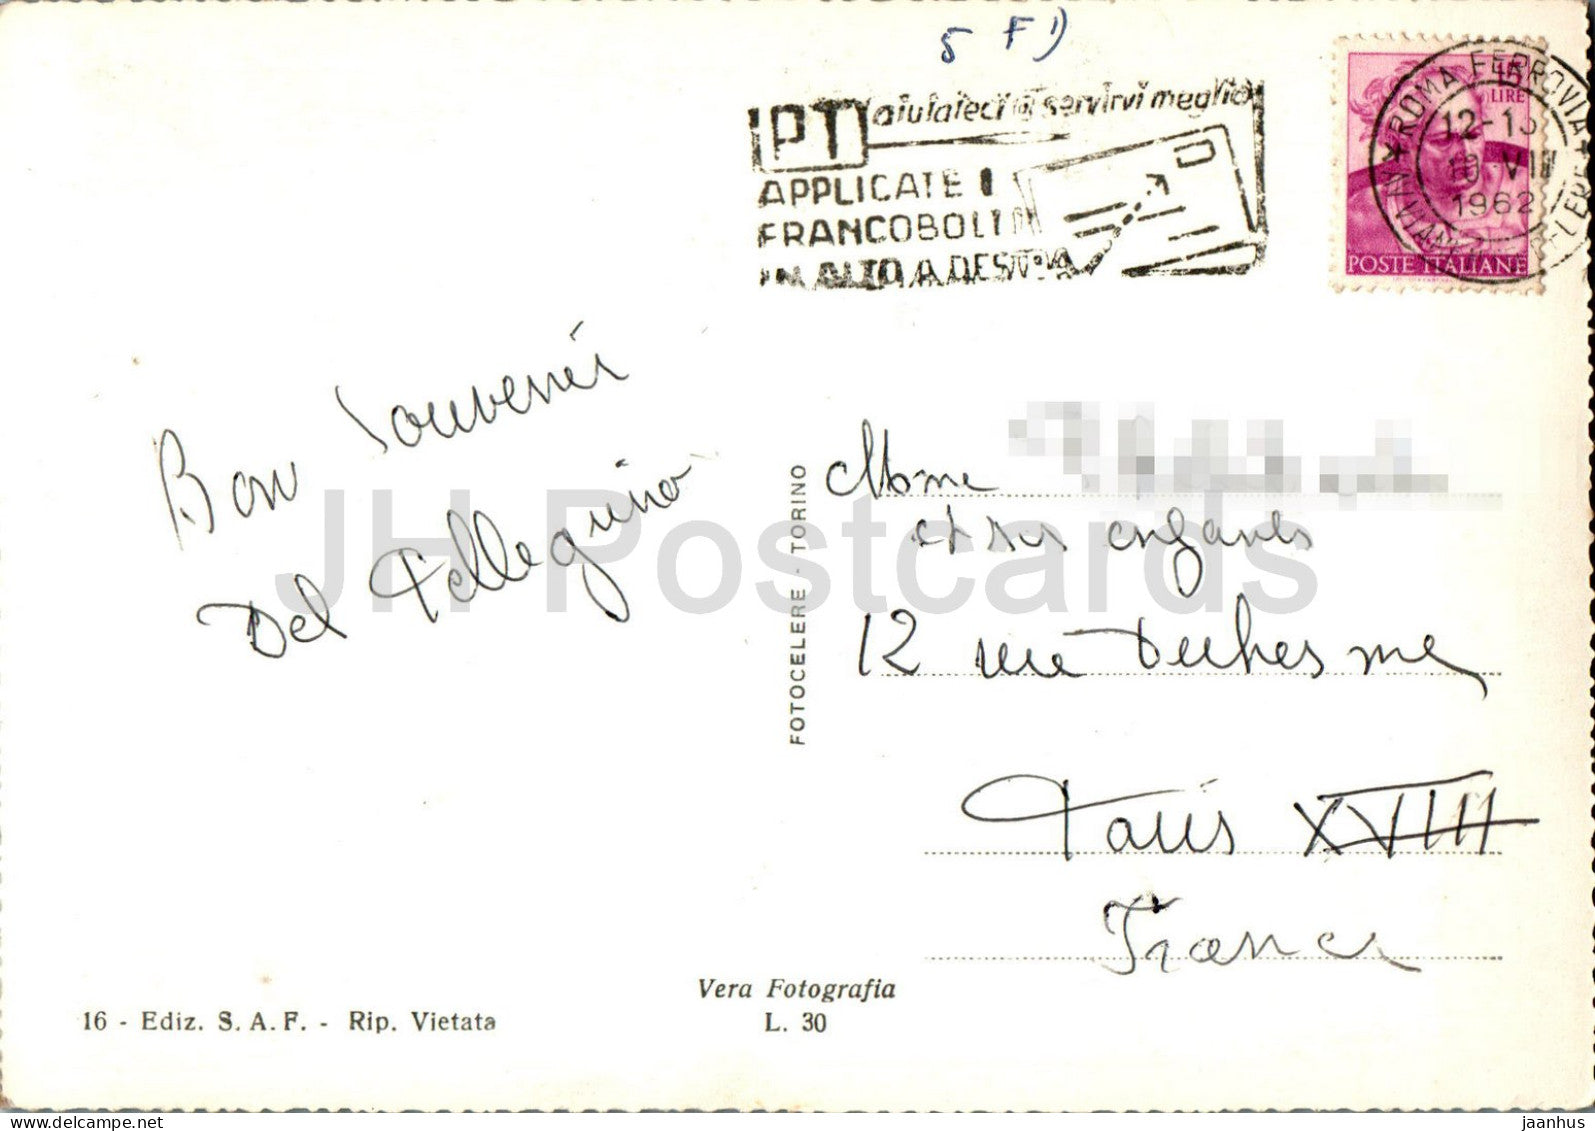 5 F
PT aiutateci a servirvi meglio
APPLICATE I
FRANCOBOLLI
IN ALTO A DESTRA
15
LIRE
POSTE ITALIANE
ROMA FERROVIA
12-13
VIII
1962
Bon Souvenir
Del Pellegrino
FOTOCELERE - TORINO
Mme
et ses enfants
12 rue Duhesme
Paris XVIII
France
Vera Fotografia
L. 30
16 - Ediz. S. A. F. - Rip. Vietata
JH Postcards
jaanhus @ delcampe.net